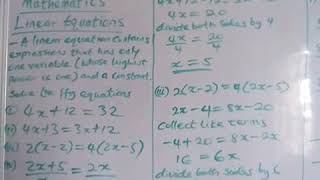 Mathematics
Linear Equations
- A linear equation contains
expressions that has only
one variable (whose highest
power is one) and a constant.
Solve the ffg equations
(i) 4x+12 = 32
(ii) 4x+3 = 3x+12
(iii) 2(x-2) = 4(2x-5)
2x+5 = 2x
4x = 20
divide both sides by 4
4x/4 = 20/4
x = 5
(iii) 2(x-2) = 4(2x-5)
2x-4 = 8x-20
Collect like terms
-4+20 = 8x-2x
16 = 6x
divide both sides by 6